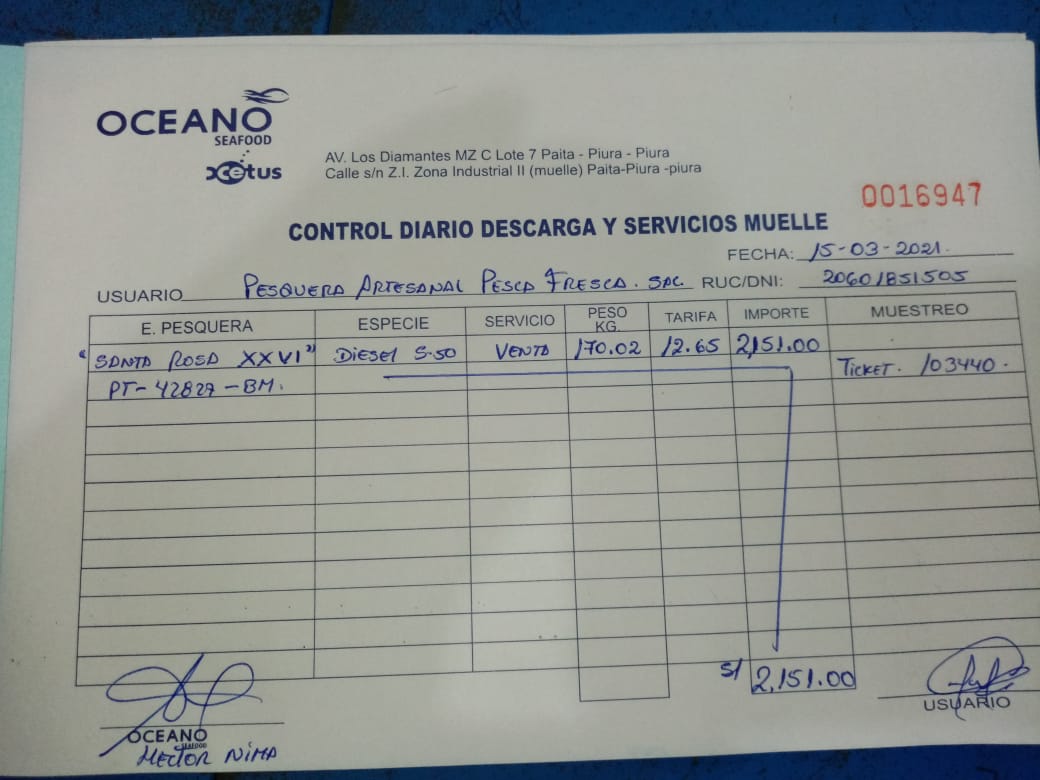 OCEANO
SEAFOOD
xcetus
AV. Los Diamantes MZ C Lote 7 Paita - Piura - Piura
Calle s/n Z.I. Zona Industrial II (muelle) Paita-Piura -piura
0016947
CONTROL DIARIO DESCARGA Y SERVICIOS MUELLE
FECHA: 15-03-2021.
USUARIO PESQUERA ARTESANAL PESCA FRESCA. SAC. RUC/DNI: 20601851505
E. PESQUERA ESPECIE SERVICIO PESO KG. TARIFA IMPORTE MUESTREO
"SANTA ROSA XXVI" DIESEL S-50 VENTA 170.02 12.65 2,151.00
PT-42827-BM. TICKET. 103440.
S/ 2,151.00
OCEANO
SEAFOOD
USUARIO
HECTOR NIMA